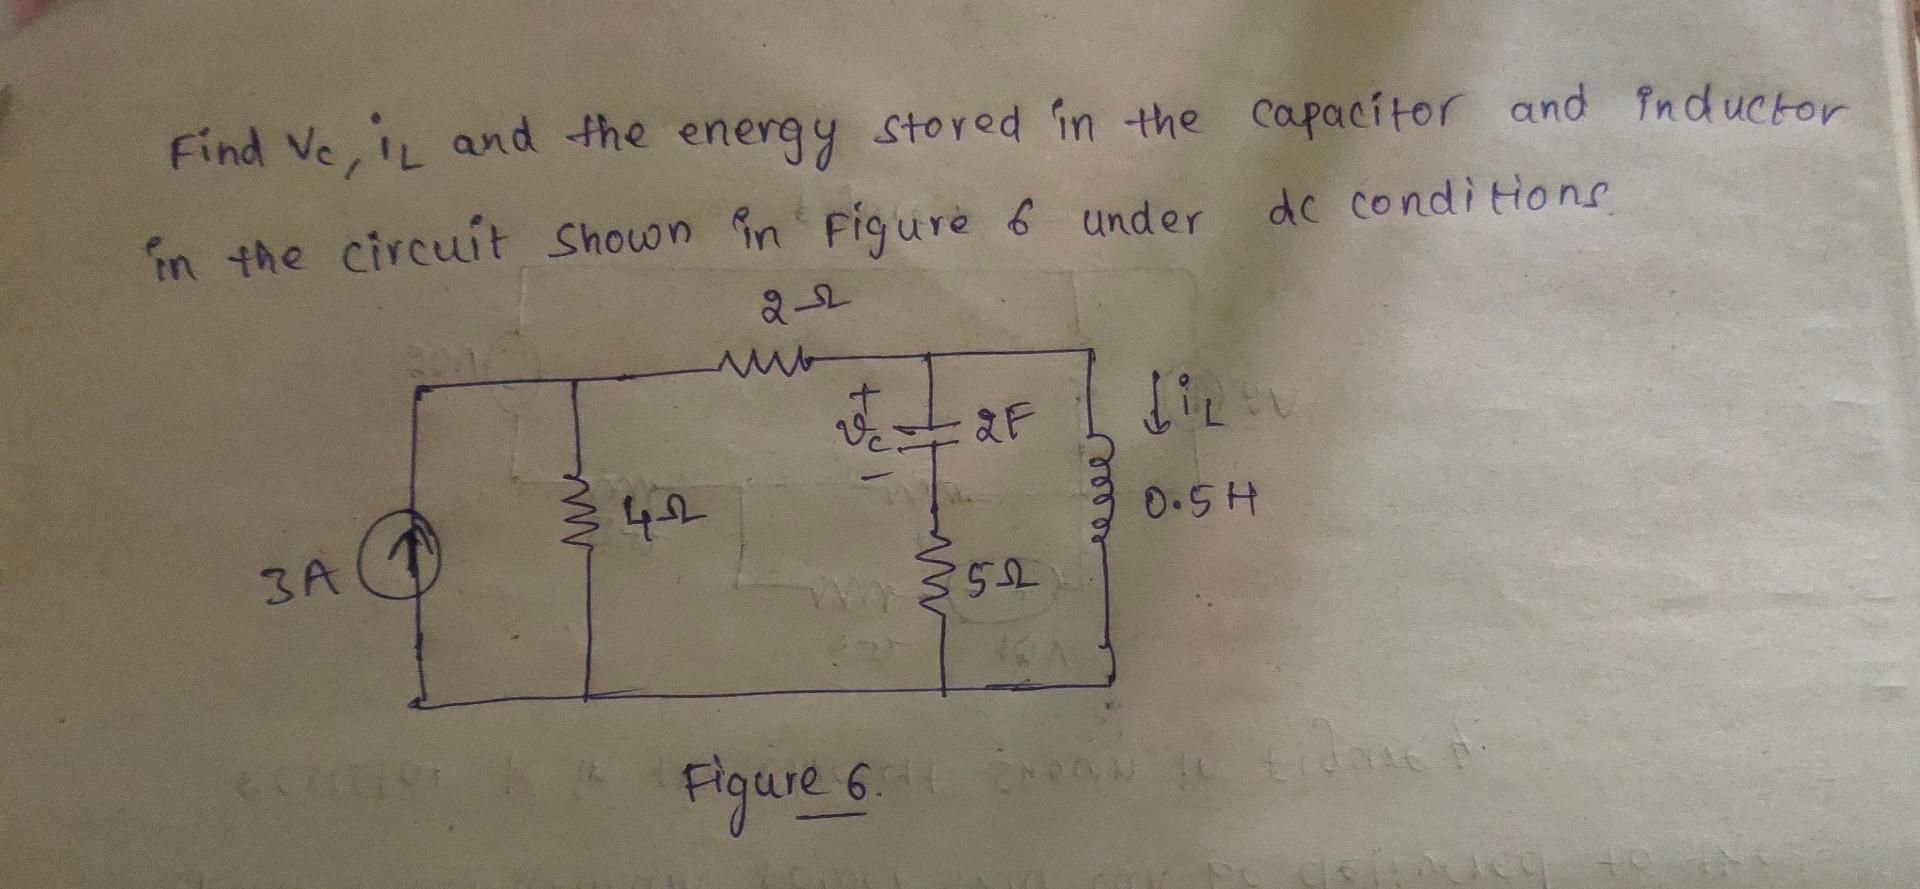 Find Vc, iL and the energy stored in the capacitor and inductor
in the circuit shown in Figure 6 under dc conditions.
2Ω
+
vc
-
2F
↓iL
4Ω
0.5H
3A
5Ω
Figure 6.